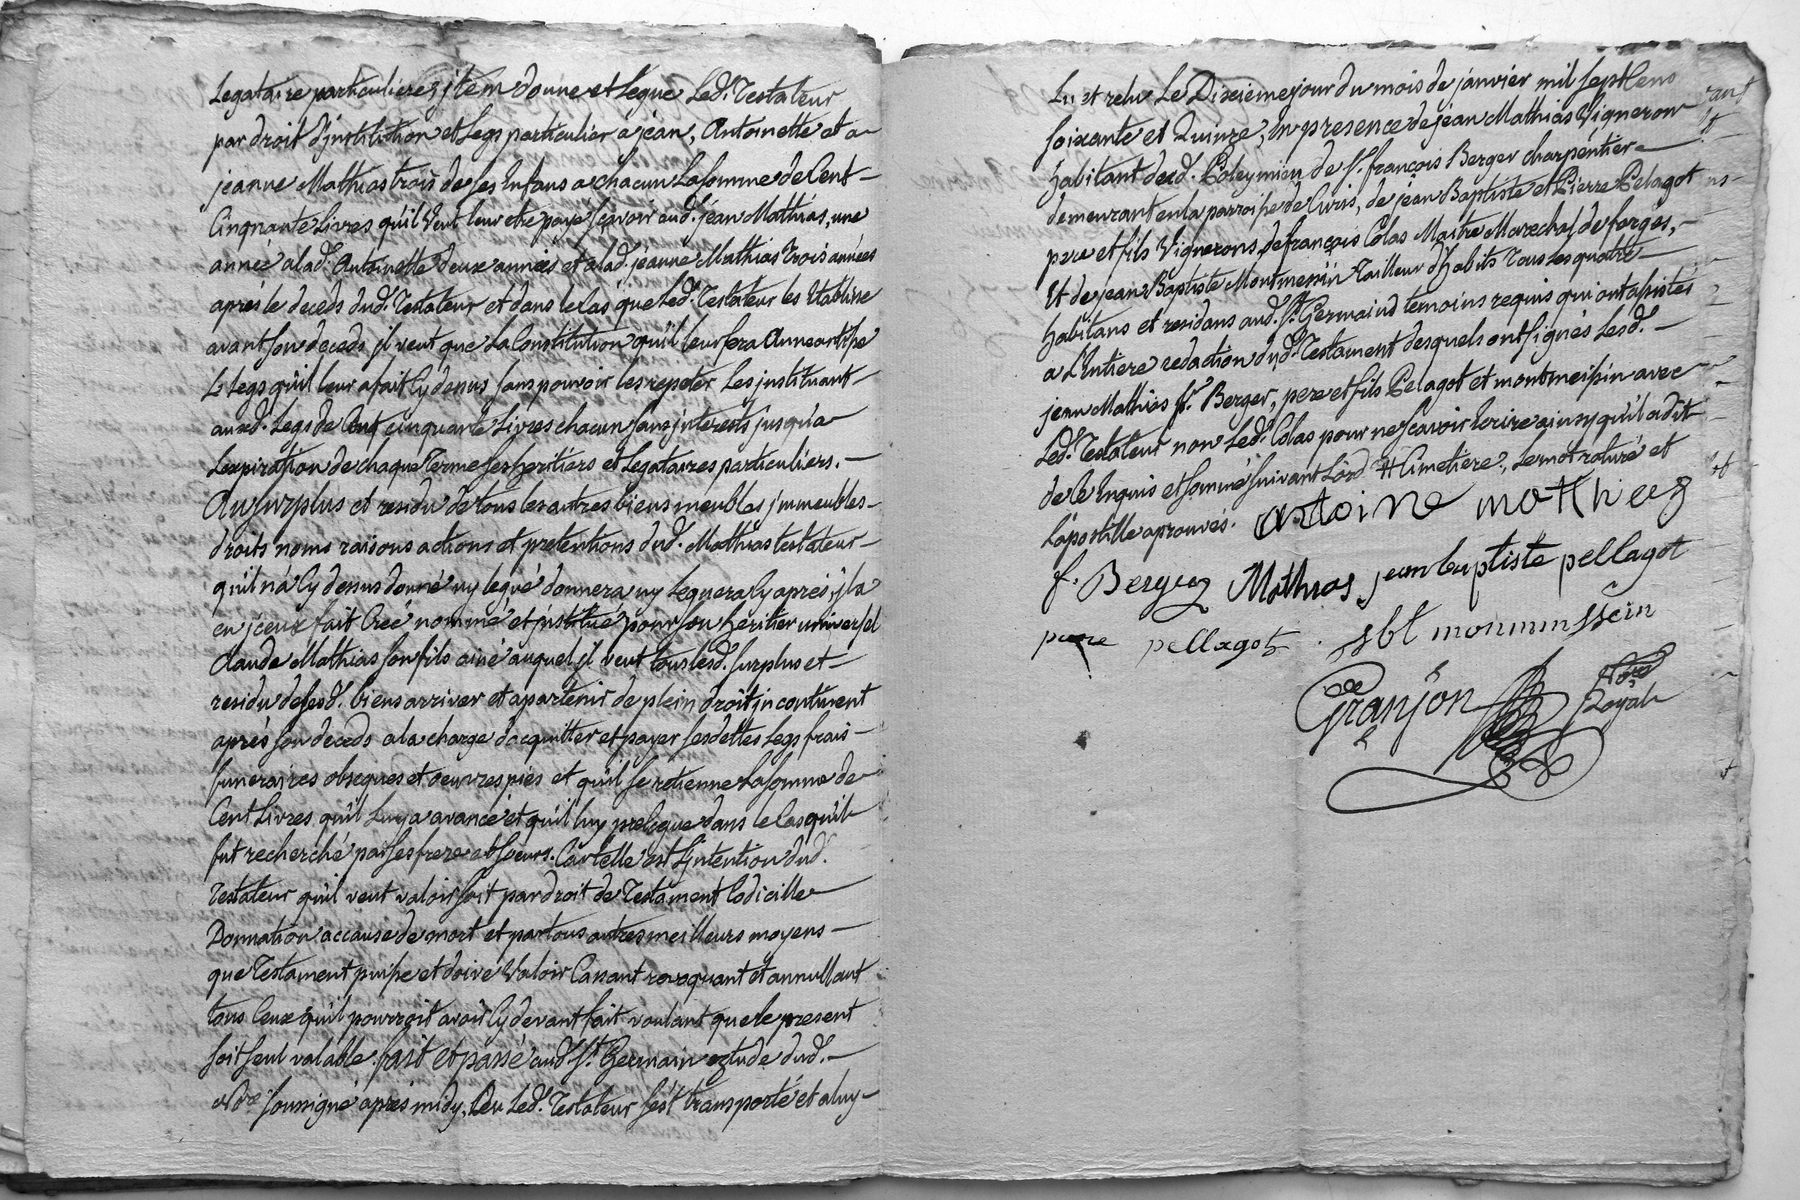 Legataire particulieres, jtem donne et legue Led. Testateur
par droit d'jnstitution et legs particulier a jean, Antoinette et a
jeanne Mathias trois de ses Enfans a chacun La somme de Cent
Cinquante Livres qu'il Veut leur etre payé sçavoir aud. jean Mathias, une
année a lad. Antoinette deux années et a lad. jeanne Mathias Trois années
aprés le deceds dud. Testateur et dans le Cas que Led. Testateur les Etablisse
avant son deceds jl veut que La Constitution qu'il leur fera Aneantisse
Le Legs qu'il leur a fait Cy dessus sans pouvoir les repeter Les jnstituant
auxd. Legs de Cent Cinquante Livres chacun sans jnterests jusqu'a
L'expiration de chaque Terme ses heritiers et Legataires particuliers.
Au surplus et residu de tous les autres biens meubles jmmeubles
droits noms raisons actions et pretentions dud. Mathias testateur
qu'il n'a Cy dessus donné ny legué donnera ny Leguera Cy aprés, jl a
en jceux fait Créé nommé et jnstitué pour son heritier universel
Claude Mathias son fils ainé auquel jl veut tous lesd. surplus et
residu de sesd. biens arriver et apartenir de plein droit jncontinent
aprés son deceds a la charge d'acquitter et payer ses dettes Legs frais
funeraires obseques et oeuvres pies et qu'il se retienne La somme de
Cent Livres qu'il Luy a avancé et qu'il luy prelegue dans le Cas qu'il
fut recherché par ses frere et soeurs. Car telle est L'jntention dud.
Testateur qu'il veut valoir soit par droit de Testament Codicille
Donnation a cause de mort et par tous autres meilleurs moyens
que Testament puisse et doive Valoir Cassant revoquant et annullant
tous Ceux qu'il pourroit avoir Cy devant fait voulant que le present
soit seul valable. fait et passé aud. St. Germain etude dud.
Nore soussigné aprés midy, Ou Led. Testateur s'est transporté et a luy
Lu et relu Le Dixieme jour du mois de janvier mil sept Cens
soixante et Quinze, en presence de jean Mathias Vigneron
habitant dud. Poleymieu de Sr. françois Berger charpentier
demeurant en la parroisse de Curis, de jean Baptiste et Pierre Pelagot
pere et fils Vignerons, de françois Colas Maitre Marechal de forges,
Et de jean Baptiste Montmessin Tailleur d'habits Tous les quatre
habitans et residans aud. St. Germain temoins requis qui ont assistés
a L'Entiere redaction dud. Testament desquels ont signés Lesd.
jean Mathias Sr. Berger, pere et fils Pelagot et montmeissin avec
Led. Testateur non Led. Colas pour ne sçavoir Ecrire ainsy qu'il a dit
de Ce Enquis et sommé suivant L'ord # Cimetiere, Le mot raturé et
L'apostille aprouvés. antoine mathias
f. Berger Mathias jean baptiste pellagot
piere pellagot jbt monmessein
Granjon Nore Royal